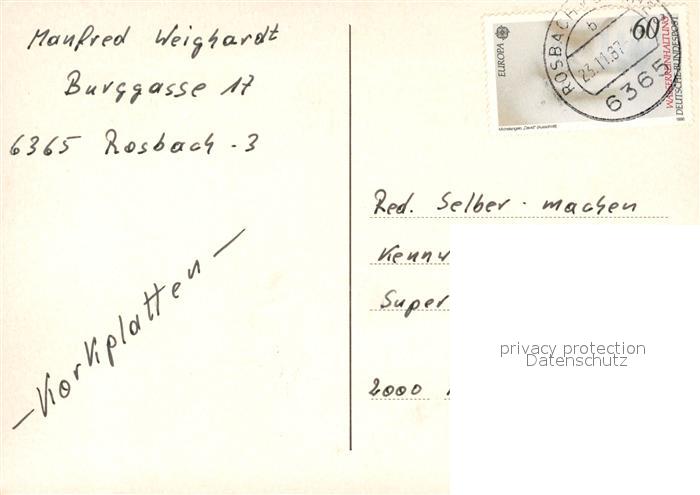 Manfred Weighardt
Burggasse 17
6365 Rosbach - 3
- Korkplatten -
EUROPA
60
WASSERREINHALTUNG
DEUTSCHE BUNDESPOST
Michelangelo, „David“ (Ausschnitt)
1986
ROSBACH
b
23.11.87
6365
Red. Selber-machen
Kennw
Super
2000
privacy protection
Datenschutz